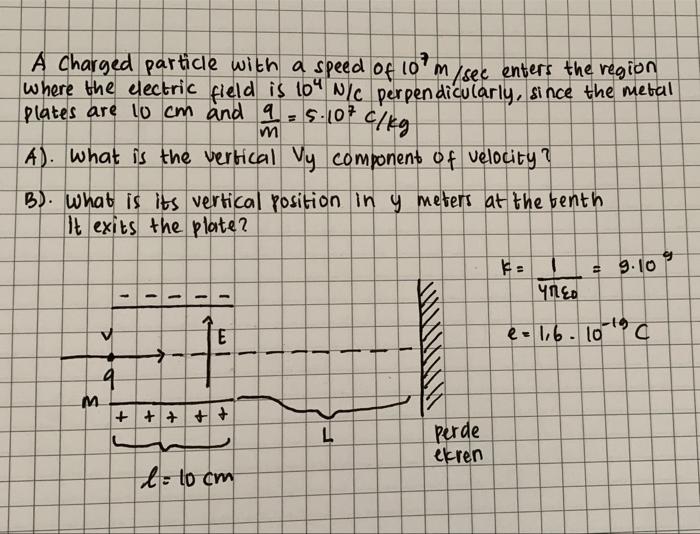 A charged particle with a speed of 10⁷ m/sec enters the region
where the electric field is 10⁴ N/C perpendicularly, since the metal
plates are 10 cm and q/m = 5·10⁷ C/kg
A). What is the vertical Vy component of velocity?
B). What is its vertical position in y meters at the tenth
It exits the plate?
k = 1/4πε0 = 9·10⁹
e = 1,6 · 10⁻¹⁹ C
- - - - -
V
E
q
m
+ + + + +
L
perde
ekren
l = 10 cm